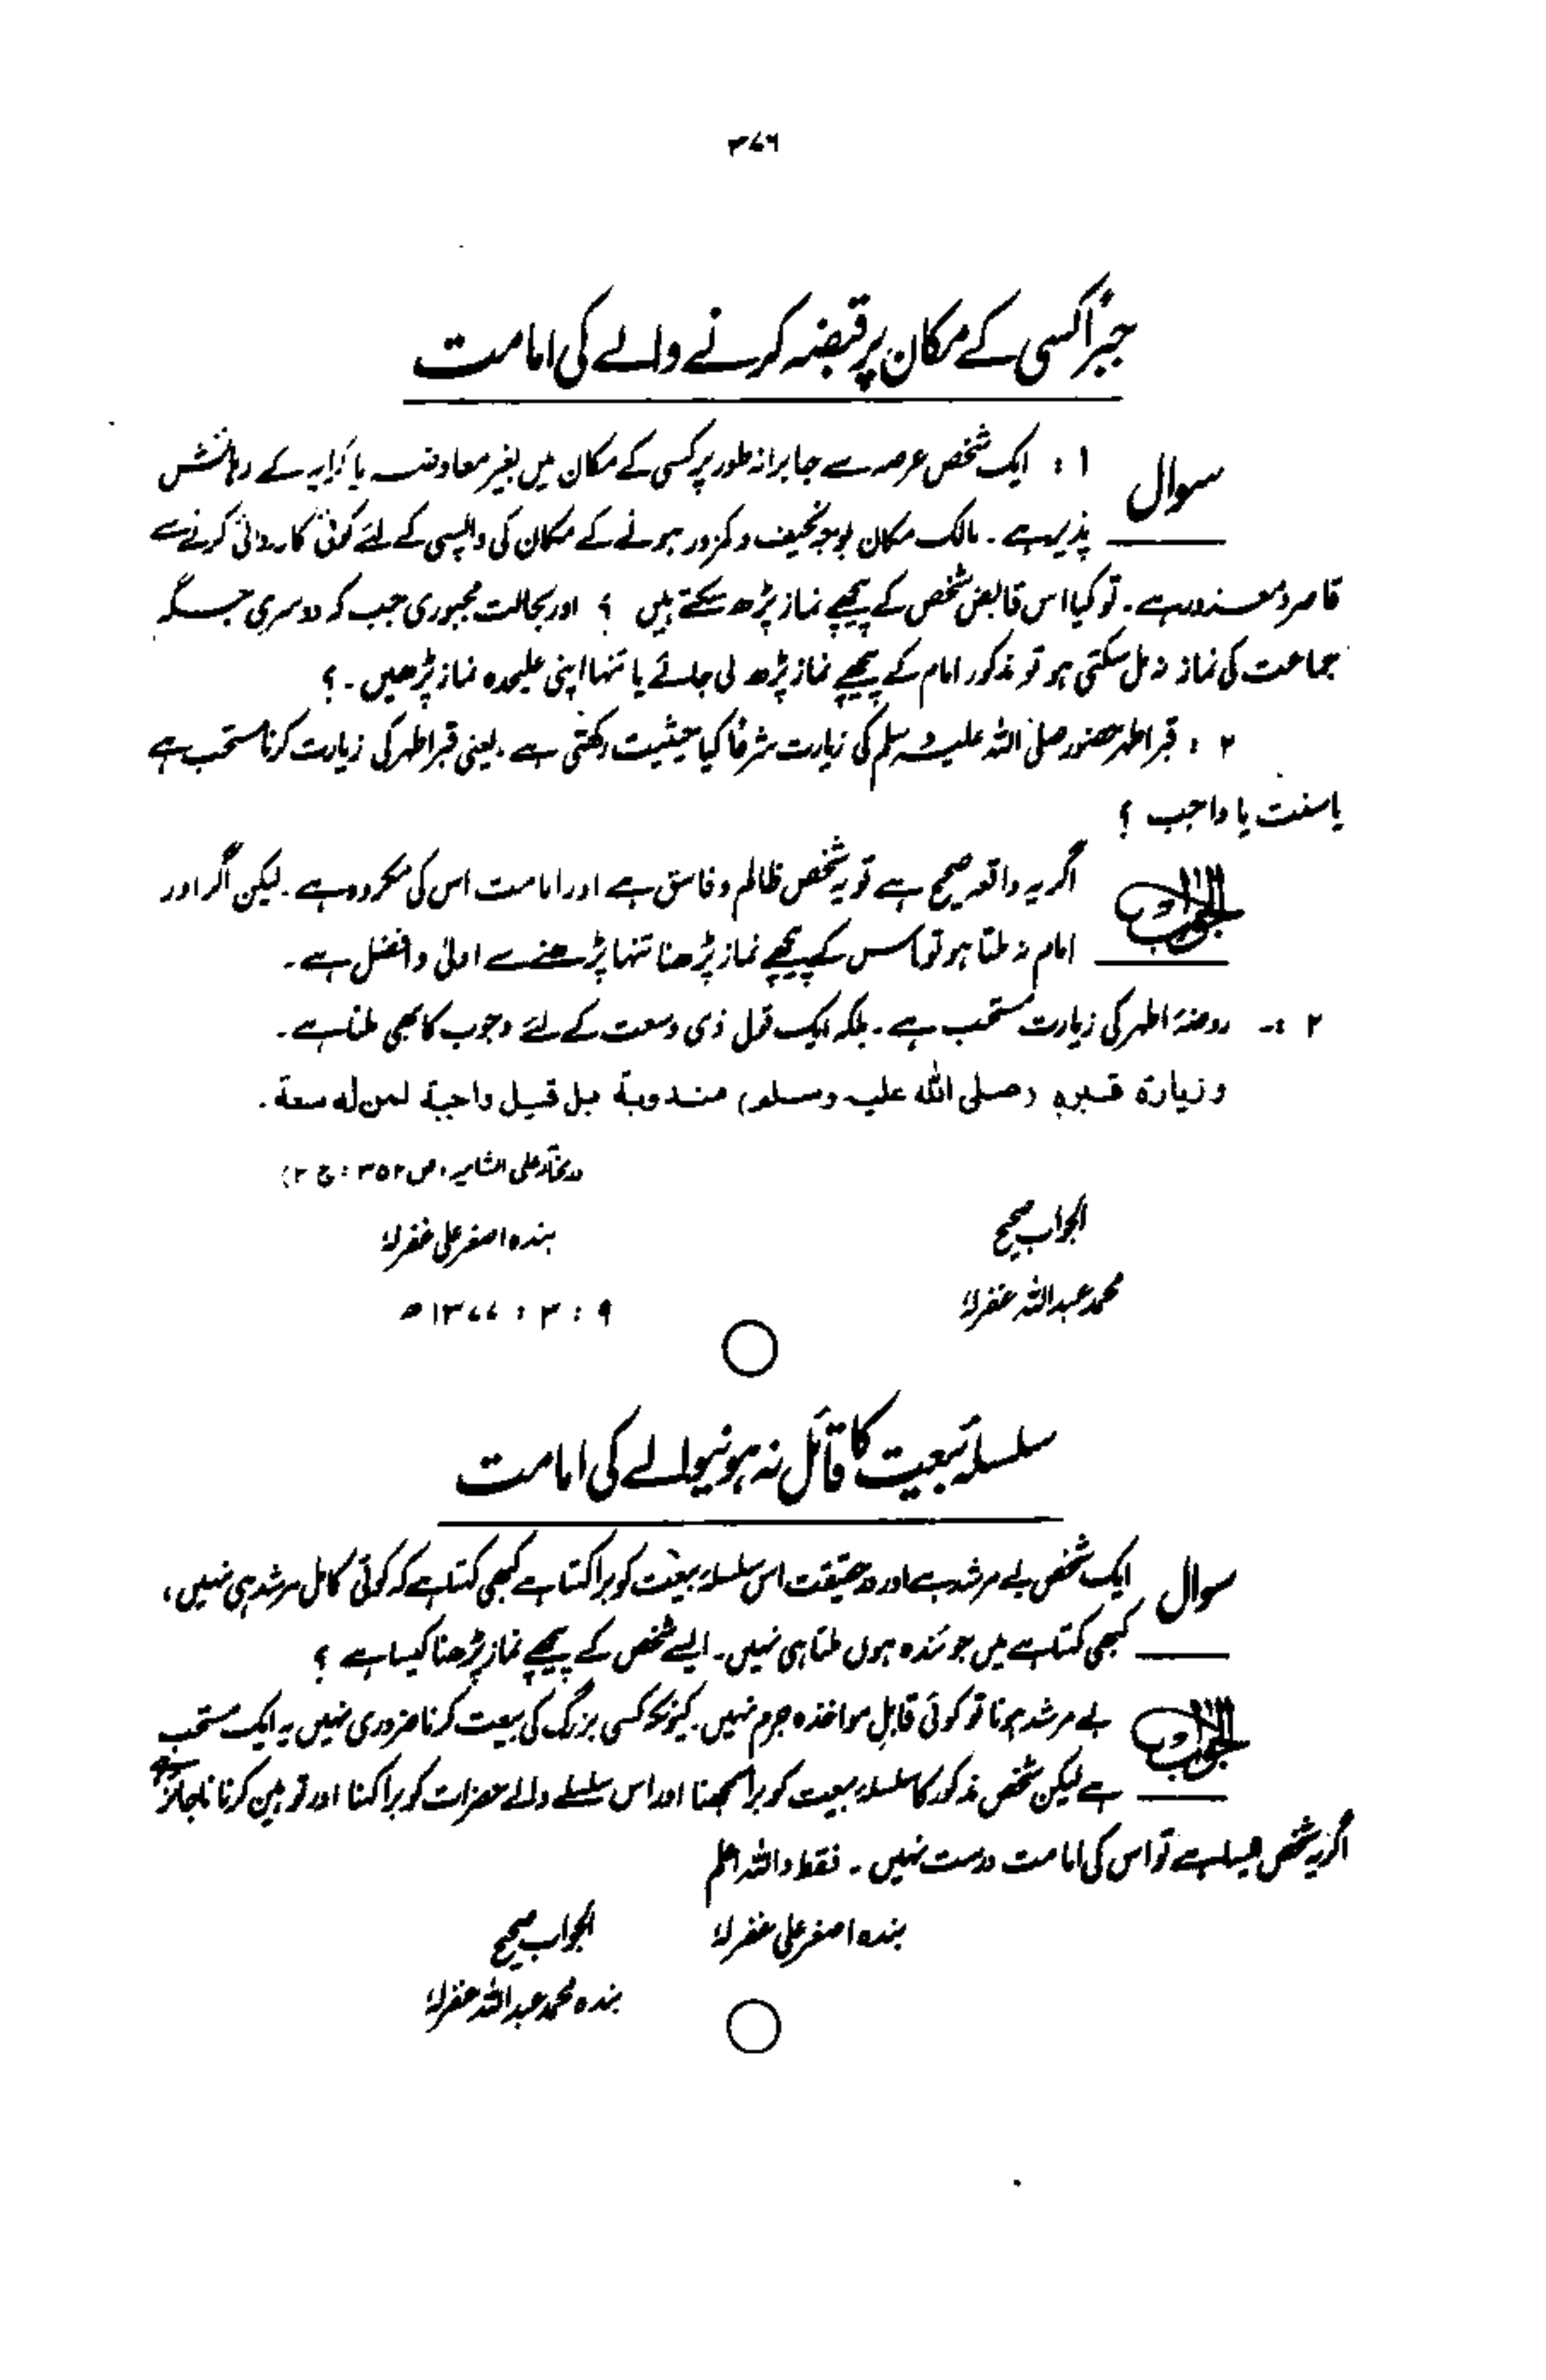 ۳۷۶
جبراً کسی کے مکان پر قبضہ کرنے والے کی امامت
سوال ۱ : ایک شخص عرصہ سے جابرانہ طور پر کسی کے مکان میں بغیر معاوضہ یا کرایہ کے رہائش
پذیر ہے ۔ مالک مکان بوجہ نحیف و کمزور ہونے کے مکان کی واپسی کے لئے کوئی کاروائی کرنے سے
قاصر و معذور ہے ۔ تو کیا اس قابض شخص کے پیچھے نماز پڑھ سکتے ہیں ؟ اور بحالت مجبوری جب کہ دوسری جگہ
جماعت کی نماز نہ مل سکتی ہو تو مذکور امام کے پیچھے نماز پڑھ لی جائے یا تنہا اپنی علیحدہ نماز پڑھیں ۔ ؟
۲ : قبر اطہر حضور صلی اللہ علیہ وسلم کی زیارت شرعًا کیا حیثیت رکھتی ہے ۔ یعنی قبر اطہر کی زیارت کرنا مستحب ہے
یا سنت یا واجب ؟
الجواب اگر یہ واقعہ صحیح ہے تو یہ شخص ظالم و فاسق ہے اور امامت اس کی مکروہ ہے ۔ لیکن اگر اور
امام نہ ملتا ہو تو اس کے پیچھے نماز پڑھنا تنہا پڑھنے سے اولیٰ و افضل ہے ۔
۲ :۔ روضۂ اطہر کی زیارت مستحب ہے ۔ بلکہ ایک قول ذی وسعت کے لئے وجوب کا بھی ملتا ہے ۔
وزیارة قبره (صلی الله علیه وسلم) مندوبة بل قیل واجبة لمن له سعة ۔
درمختار علی الشامیہ ، ص ۳۵۲ : ج ۲)
الجواب صحیح
بندہ اصغر علی غفرلہ
محمد عبداللہ غفرلہ
۹ : ۳ : ۱۳۷۷ ھ
سلسلۂ بیعت کا قائل نہ ہونیوالے کی امامت
سوال ایک شخص بے مرشد ہے اور درحقیقت اس سلسلہ بیعت کو برا کہتا ہے کبھی کہتا ہے کہ کوئی کامل مرشد ہی نہیں ،
کبھی کہتا ہے میں جوئندہ ہوں ملتا ہی نہیں ۔ ایسے شخص کے پیچھے نماز پڑھنا کیسا ہے ؟
الجواب بے مرشد ہونا تو کوئی قابل مواخذہ جرم نہیں ۔ کیونکہ کسی بزرگ کی بیعت کرنا ضروری نہیں یہ ایک مستحب
ہے لیکن شخص مذکور کا سلسلہ بیعت کو برا سمجھنا اور اس سلسلے والے حضرات کو برا کہنا اور توہین کرنا ناجائز
اگر یہ شخص ایسا ہے تو اس کی امامت درست نہیں ۔ فقط واللہ اعلم
بندہ اصغر علی غفرلہ
الجواب صحیح
بندہ محمد عبداللہ غفرلہ